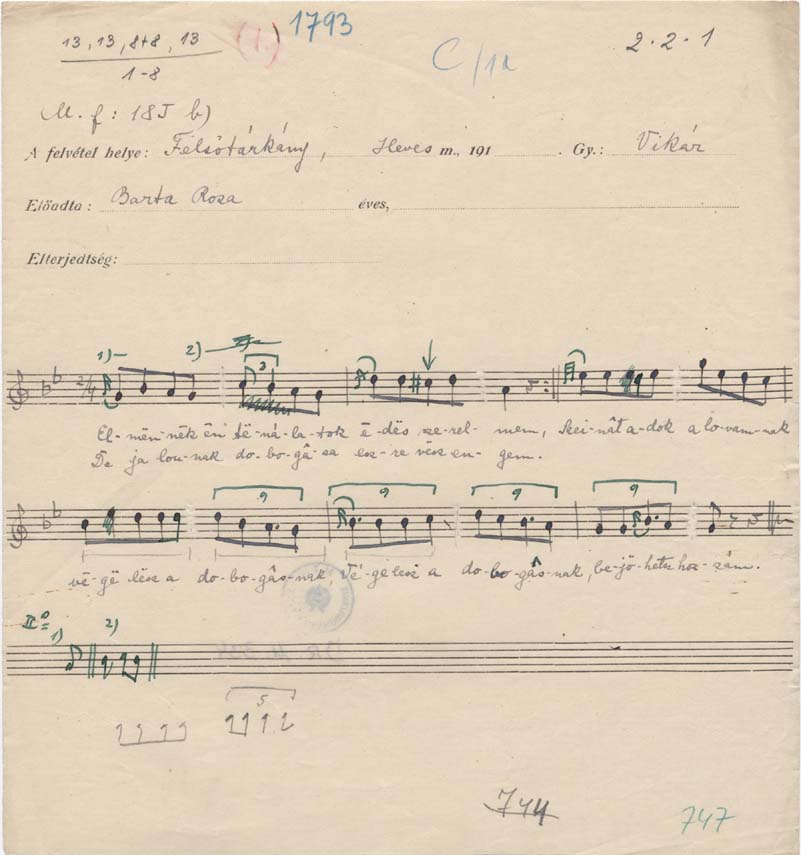 13, 13, 8+8, 13 (1.) 1793 C/1a 2.2.1
1-8
M. f: 185 b)
A felvétel helye: Felsőtárkány, Heves m., 191 . Gy.: Vikár
Előadta: Barta Roza éves,
Elterjedtség:
1) 2)
3
2/4
El-mën-nék én të-ná-la-tok ë-dës sze-rel-mem, a-dok a lo-vam-nak
De ja lou-nak do-bo-gá-sa esz-re vësz en-gem.
9 9 9 9
vé-gë lësz a do-bo-gás-nak, Vé-ge lesz a do-bo-gás-nak, be-jö-hetu hoz-zám.
II°=
1) 2)
5
744
747